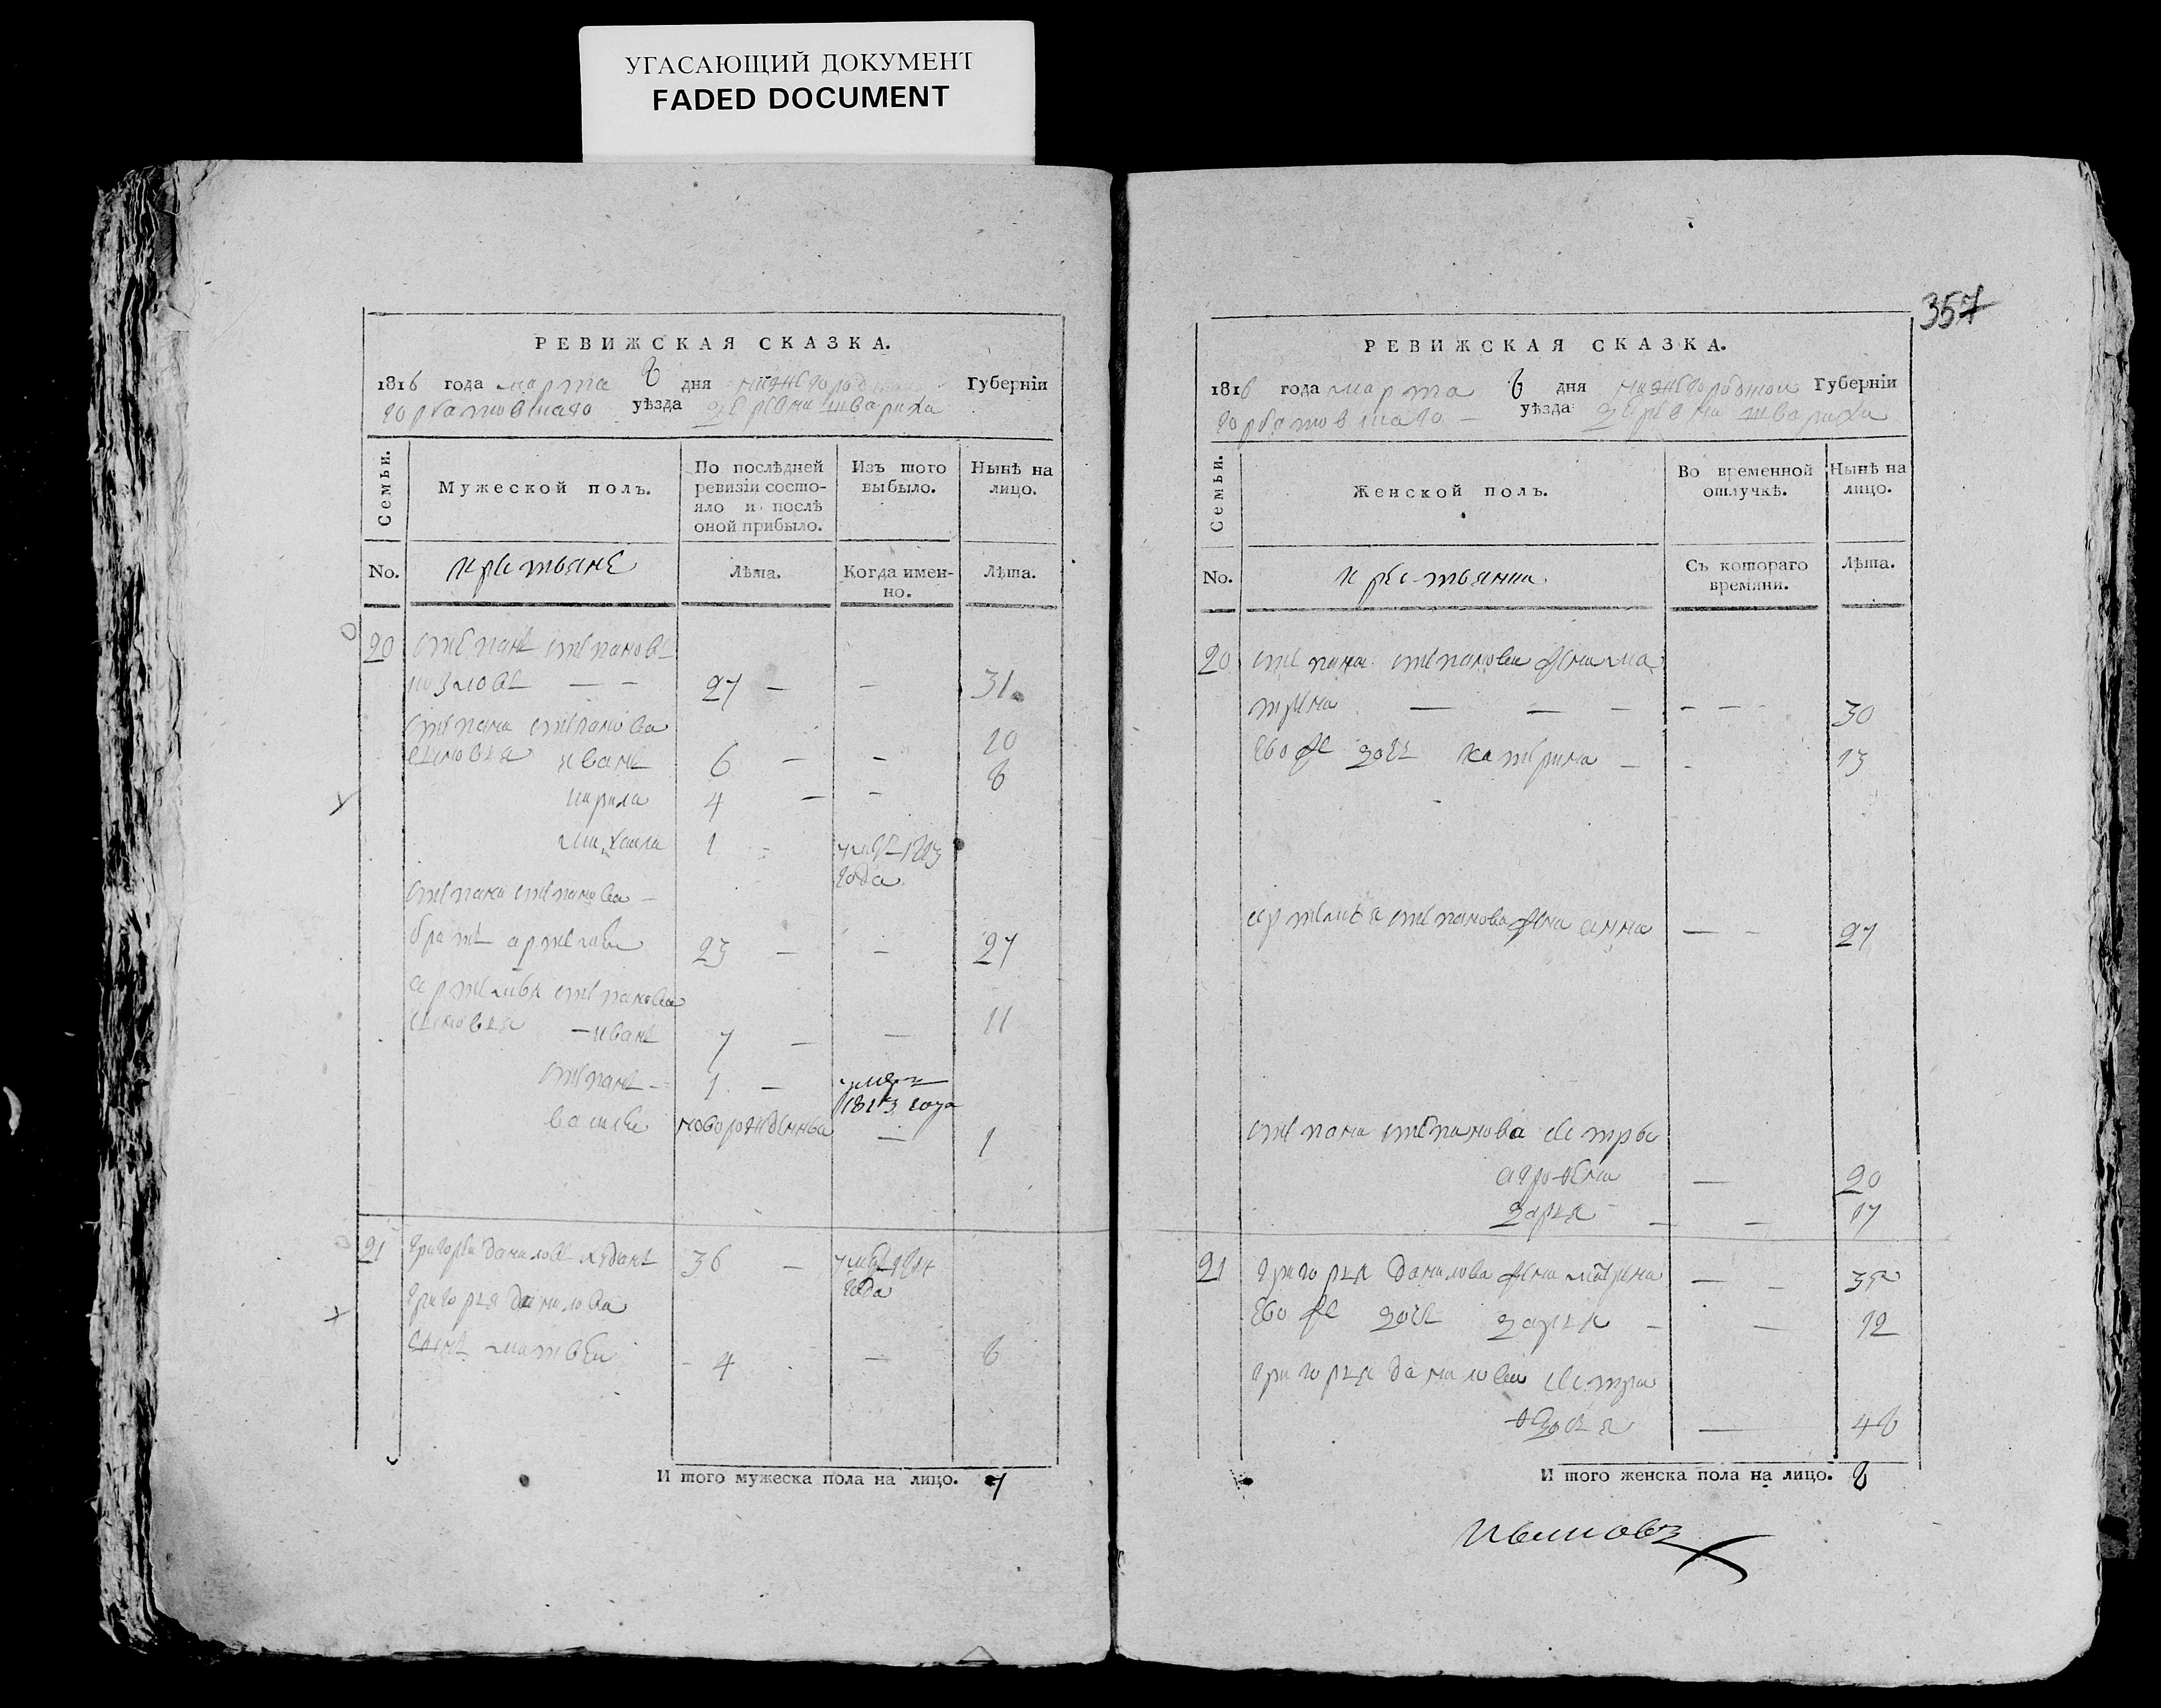 УГАСАЮЩИЙ ДОКУМЕНТ
FADED DOCUMENT
РЕВИЖСКАЯ СКАЗКА.
1816 года марта 8 дня нижегородской Губерніи
горбатовскаго уѣзда деревни шварихи
Семьи.
Мужеской полъ.
По послѣдней ревизіи состо-
яло и послѣ
оной прибыло.
Изъ того
выбыло.
Нынѣ на
лицо.
No.
крестьяне
Лѣта.
Когда имен-
но.
Лѣта.
20 степанъ степановъ
козловъ — — 27 — — 31
степана степанова
сыновья иванъ 6 — — 10
кирила 4 — — 8
михаила 1 - умре 1813
года
степана степанова —
братъ артемей 23 — — 27
артемья степанова
сыновья — иванъ 7 — — 11
степанъ — 1 — умре
1813 года
василей новорожденный — 1
21 григорей даниловъ 36 — умре 1814
года
григорья данилова
сынъ матвей - 4 — 8
И того мужеска пола на лицо. 7
357
РЕВИЖСКАЯ СКАЗКА.
1816 года марта 8 дня нижегородской Губерніи
горбатовскаго — уѣзда деревни шварихи
Семьи.
Женской полъ.
Во временной
отлучкѣ.
Нынѣ на
лицо.
No.
крестьянки
Съ котораго
времяни.
Лѣта.
20 степана степанова жена ма
трена — — — - — - 30
ево же дочь катерина — - 13
артемья степанова жена анна — - 27
степана степанова сестры
агрофена — 20
дарья — — 17
21 григорья данилова жена матрена — — 32
ево же дочь дарья — — 12
григорья данилова сестра
федосья — 48
И того женска пола на лицо. 8